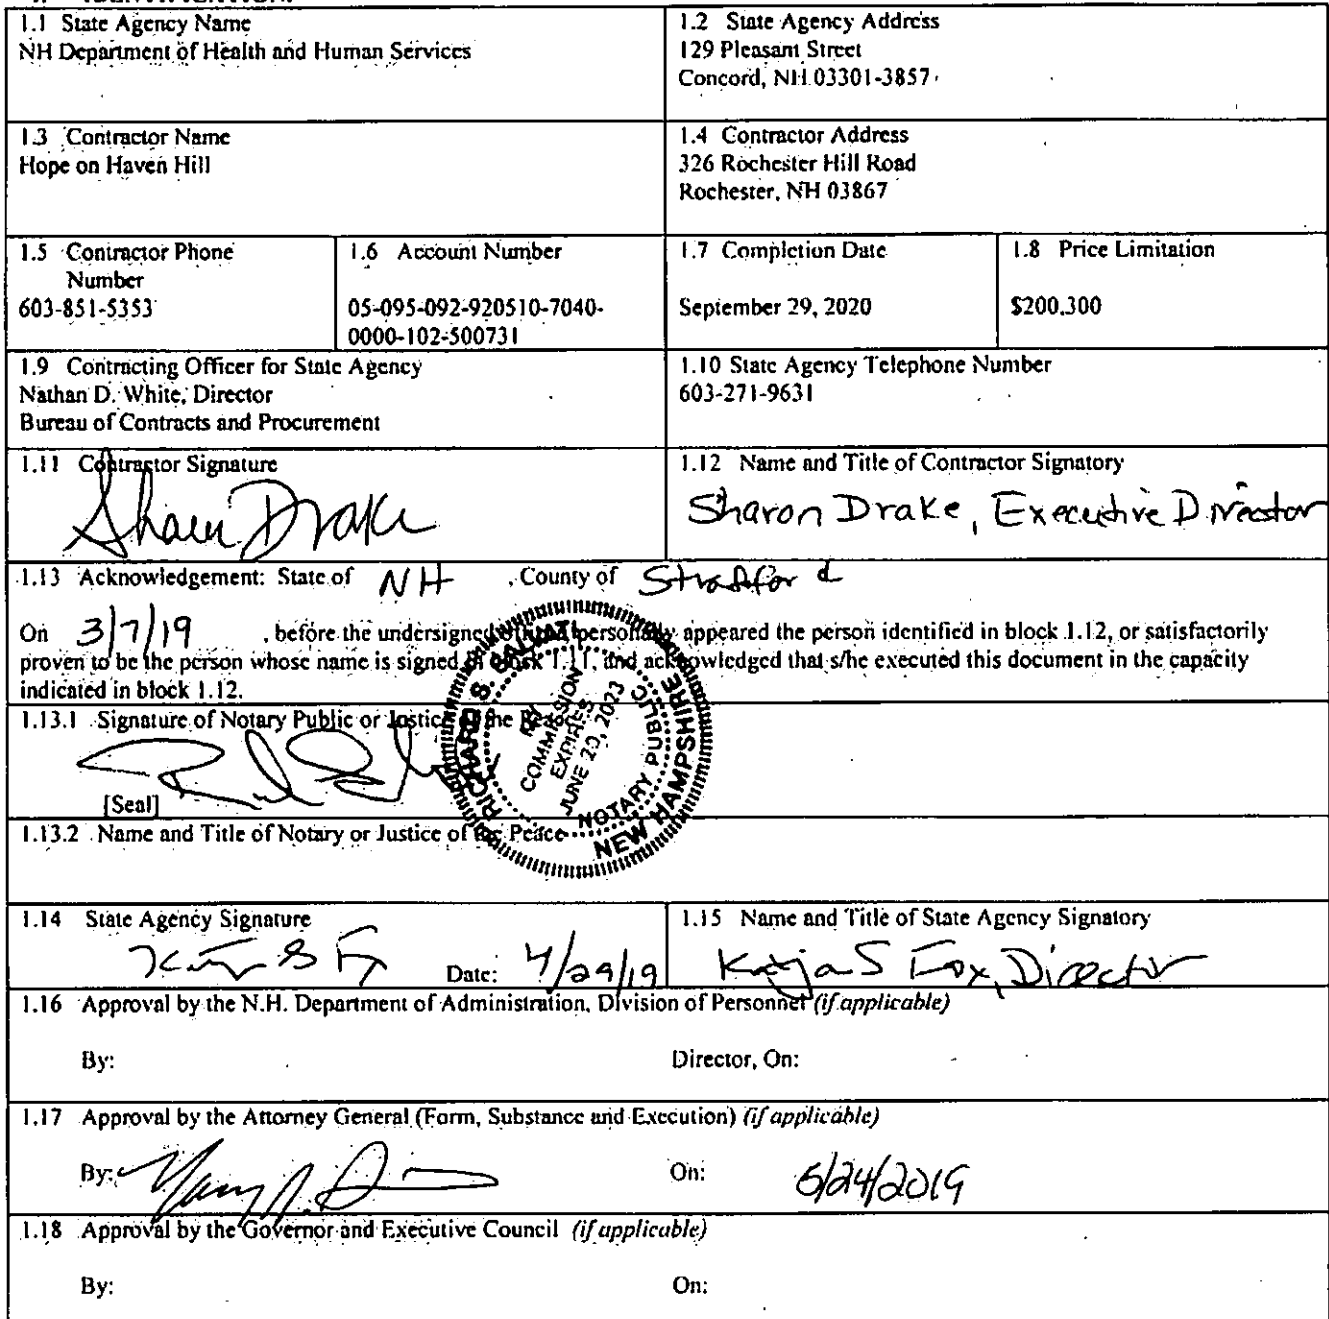 1.1 State Agency Name
NH Department of Health and Human Services
1.2 State Agency Address
129 Pleasant Street
Concord, NH 03301-3857
1.3 Contractor Name
Hope on Haven Hill
1.4 Contractor Address
326 Rochester Hill Road
Rochester, NH 03867
1.5 Contractor Phone
Number
603-851-5353
1.6 Account Number
05-095-092-920510-7040-
0000-102-500731
1.7 Completion Date
September 29, 2020
1.8 Price Limitation
$200,300
1.9 Contracting Officer for State Agency
Nathan D. White, Director
Bureau of Contracts and Procurement
1.10 State Agency Telephone Number
603-271-9631
1.11 Contractor Signature
Sharon Drake
1.12 Name and Title of Contractor Signatory
Sharon Drake, Executive Director
1.13 Acknowledgement: State of NH , County of Strafford
On 3/7/19 , before the undersigned personally appeared the person identified in block 1.12, or satisfactorily
proven to be the person whose name is signed block 1.11, and acknowledged that s/he executed this document in the capacity
indicated in block 1.12.
1.13.1 Signature of Notary Public or Justice the
[Seal]
RICHARD S.
MY
COMMISSION
EXPIRES
JUNE 20, 2023
NOTARY PUBLIC
NEW HAMPSHIRE
1.13.2 Name and Title of Notary or Justice of the Peace
1.14 State Agency Signature
Date: 4/29/19
1.15 Name and Title of State Agency Signatory
Katja S Fox, Director
1.16 Approval by the N.H. Department of Administration, Division of Personnel (if applicable)
By: Director, On:
1.17 Approval by the Attorney General (Form, Substance and Execution) (if applicable)
By: On: 5/24/2019
1.18 Approval by the Governor and Executive Council (if applicable)
By: On: